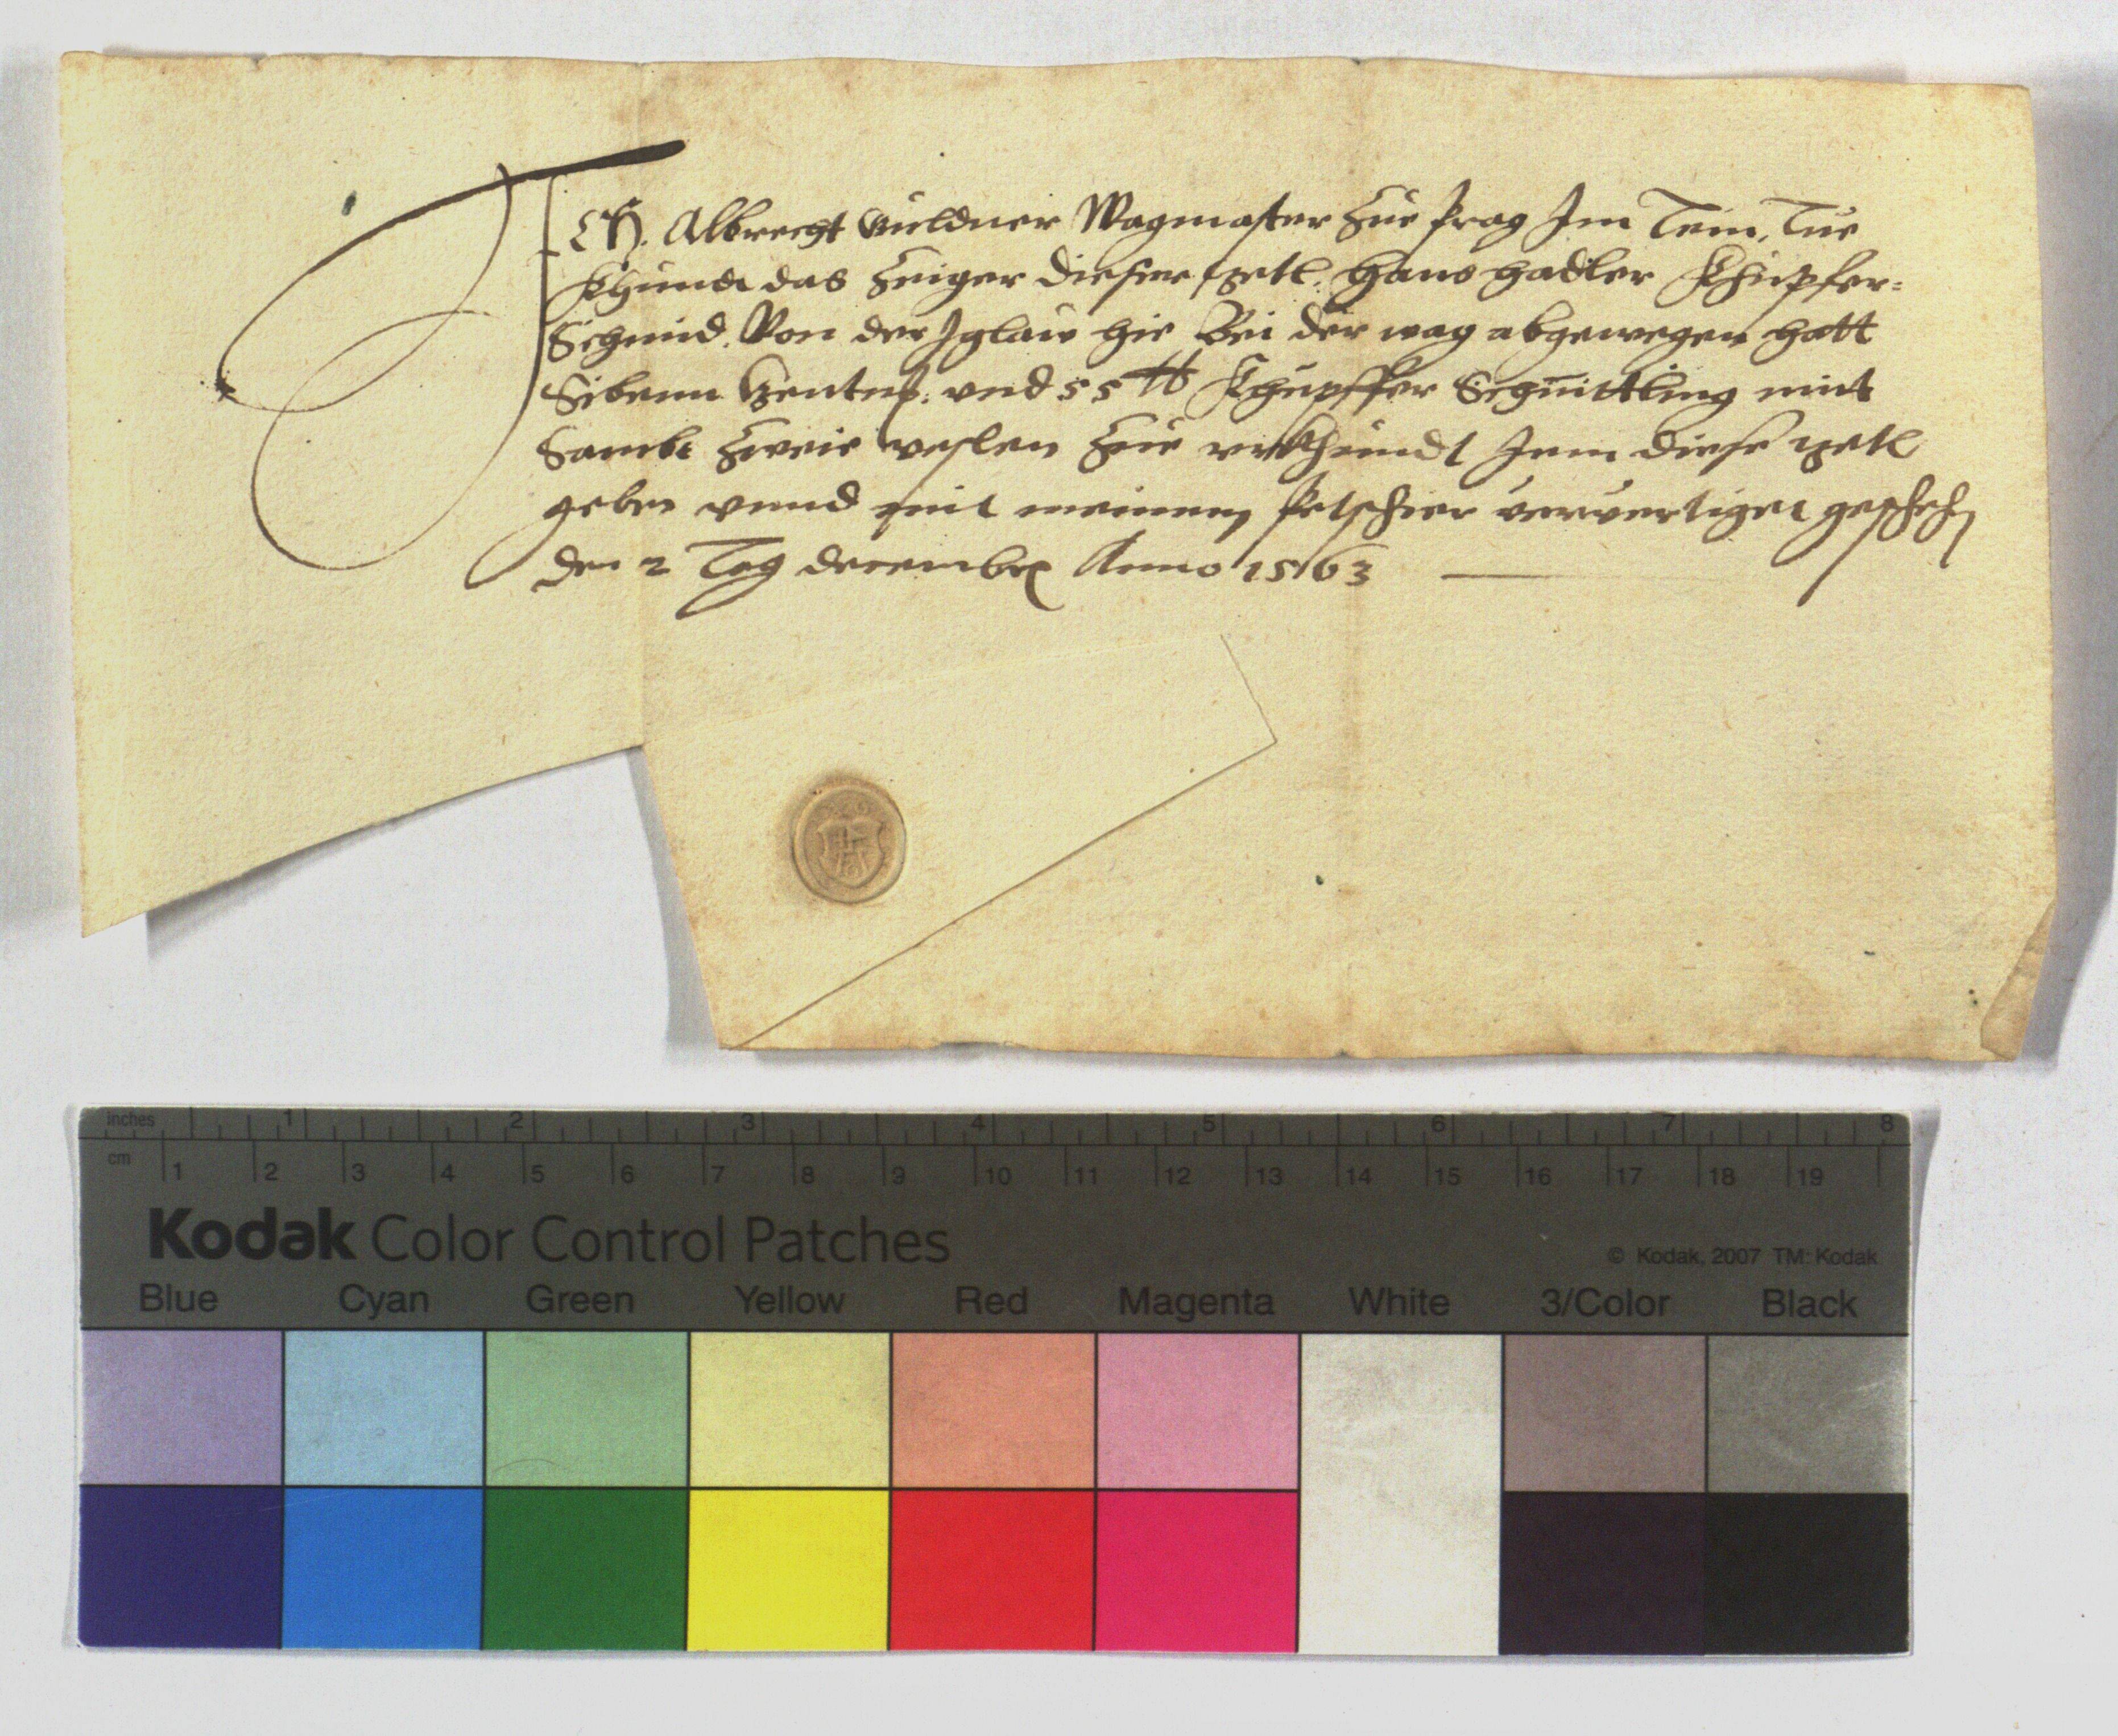 ICH. Albrecht Muldner Wagmaster Zue Prag Im Tein, Tue
Khundt das Zeiger dieser Zetl. Hans Hadler Khupfer=
Schmid. Von der Iglaw hie Bei der wag abgewegen hatt
Sibenn Zentn: vnd 55 ℔ Khupffer Schnittling mit
Sambt Zweie veslen Zue vrkhundt Inn diese zetl
geben vnnd mit meinem Petschier ververtiget geschehn
den 2 Tag decembr Anno 1563
inches 1 2 3 4 5 6 7 8
cm 1 2 3 4 5 6 7 8 9 10 11 12 13 14 15 16 17 18 19
Kodak Color Control Patches
© Kodak, 2007 TM: Kodak
Blue Cyan Green Yellow Red Magenta White 3/Color Black